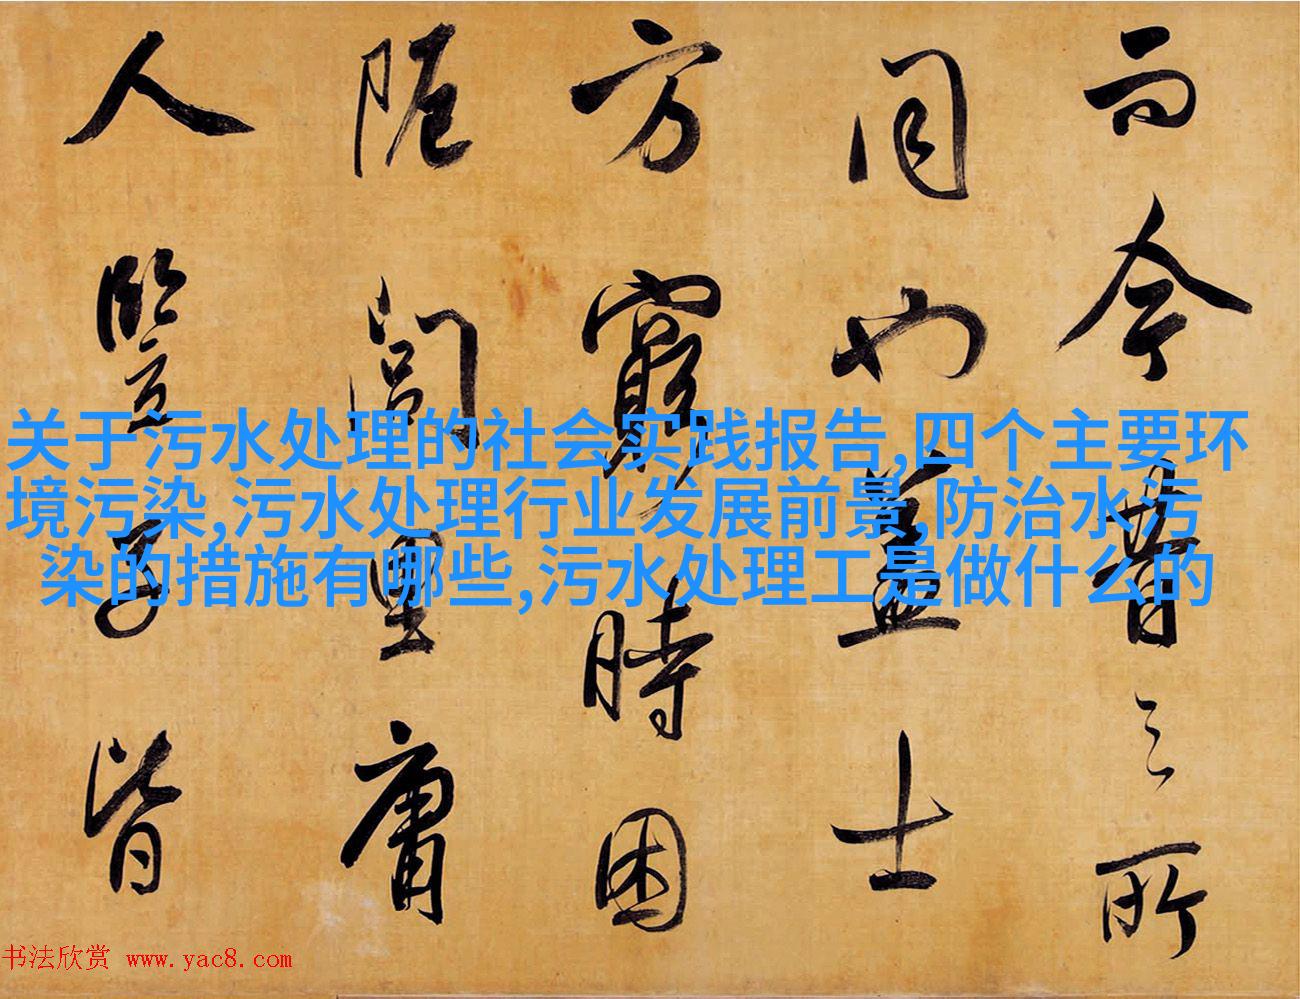 而今昔之所
同也蓋士
方窮時困
阨閭里庸
人豎子皆
关于污水处理的社会实践报告,四个主要环
境污染,污水处理行业发展前景,防治水污
染的措施有哪些,污水处理工是做什么的
书法欣赏 www.yac8.com